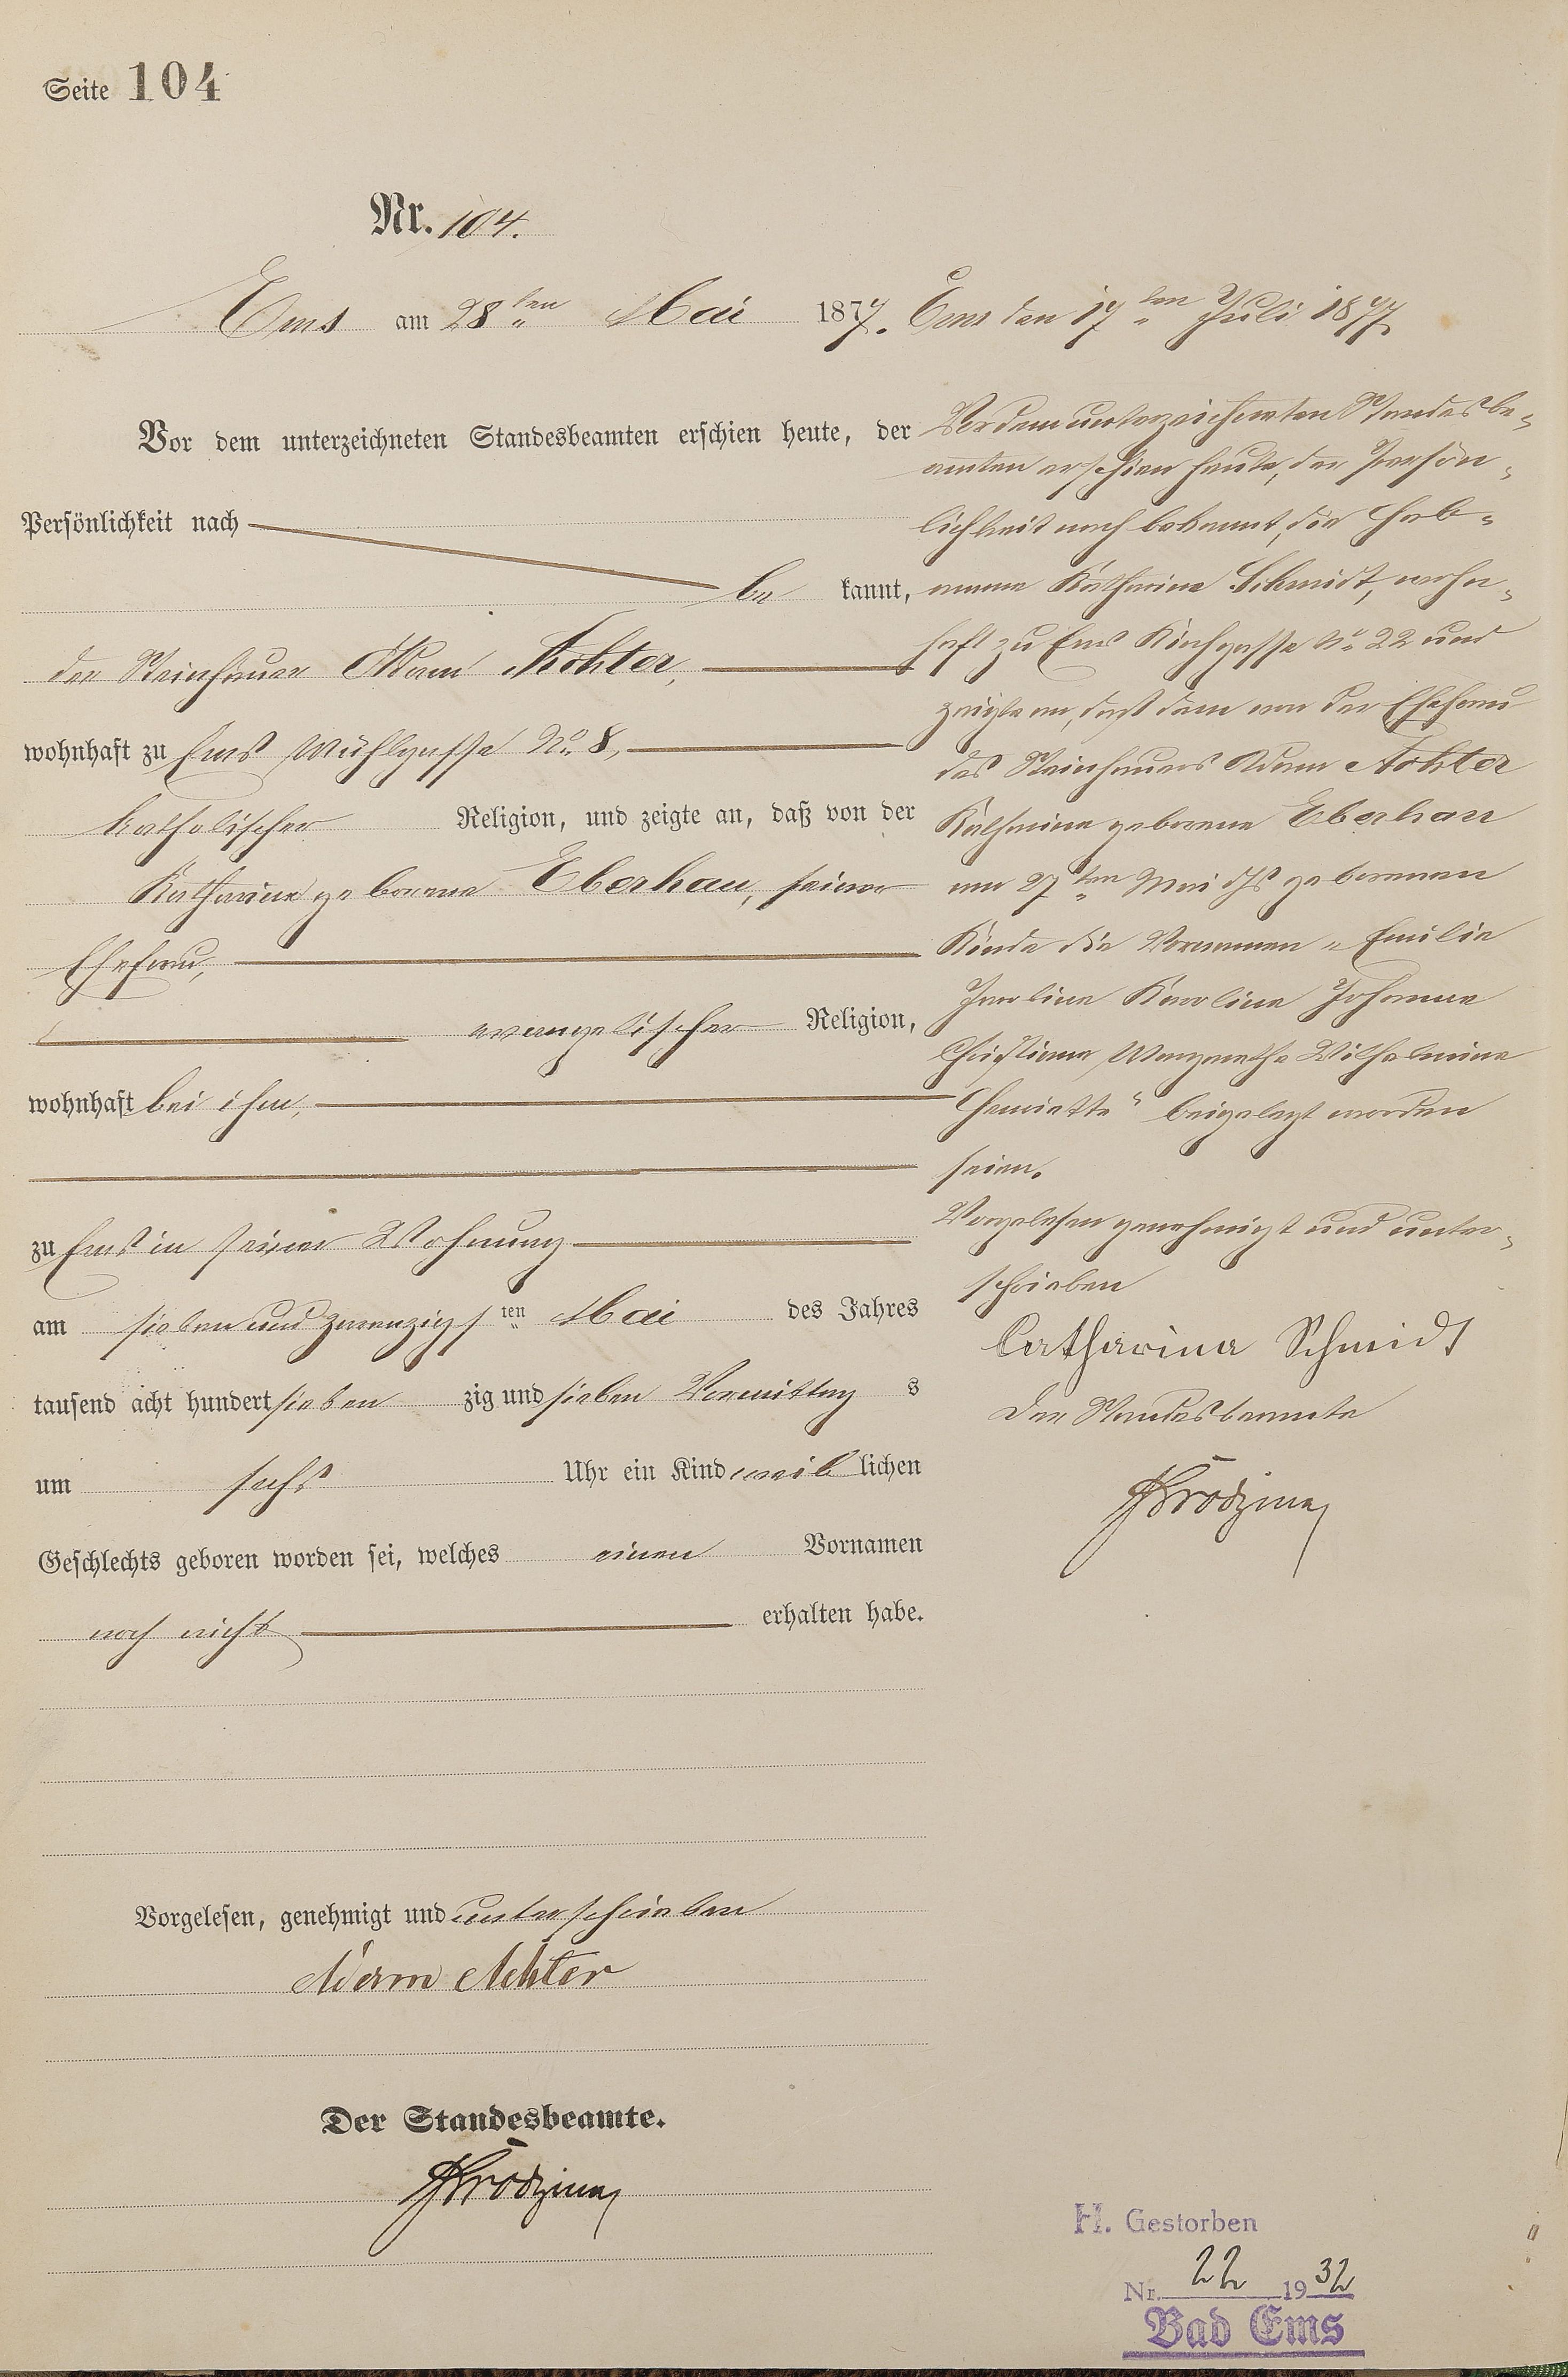 Seite 104
Nr. 104.
Ems am 28ten Mai 1877.
Vor dem unterzeichneten Standesbeamten erschien heute, der
Persönlichkeit nach
be kannt,
der Steinhauer Adam Achter,
wohnhaft zu Ems Mühlgasse No. 8,
katholischer Religion, und zeigte an, daß von der
Katharine geborene Eberhau, seiner
Ehefrau,
evangelischer Religion,
wohnhaft bei ihm,
zu Ems in seiner Wohnung
am siebenundzwanzigsten Mai des Jahres
tausend acht hundert sieben zig und sieben Vormittag s
um sechs Uhr ein Kind weib lichen
Geschlechts geboren worden sei, welches einen Vornamen
noch nicht erhalten habe.
Vorgelesen, genehmigt und unterschrieben
Adam Achter
Der Standesbeamte.
Ems den 17ten Juli 1877
Vor dem unterzeichneten Standesbe-
amten erschien heute, der Persön-
lichkeit nach bekannt, die Heb-
amme Katharine Schmidt, wohn-
haft zu Ems Kirchgasse No 22 und
zeigte an, daß dem von der Ehefrau
des Steinhauers Adam Achter
Katharine geborene Eberhau
am 27ten Mai d Js geborenen
Kinde die Vornamen „Emilie
Karoline Johanne
Christiane Margarethe Wilhelmine
Henriette“ beigelegt worden
seien.
Vorgelesen genehmigt und unter-
schrieben
Catharina Schmidt
Der Standesbeamte
H. Gestorben
Nr. 22 1932
Bad Ems